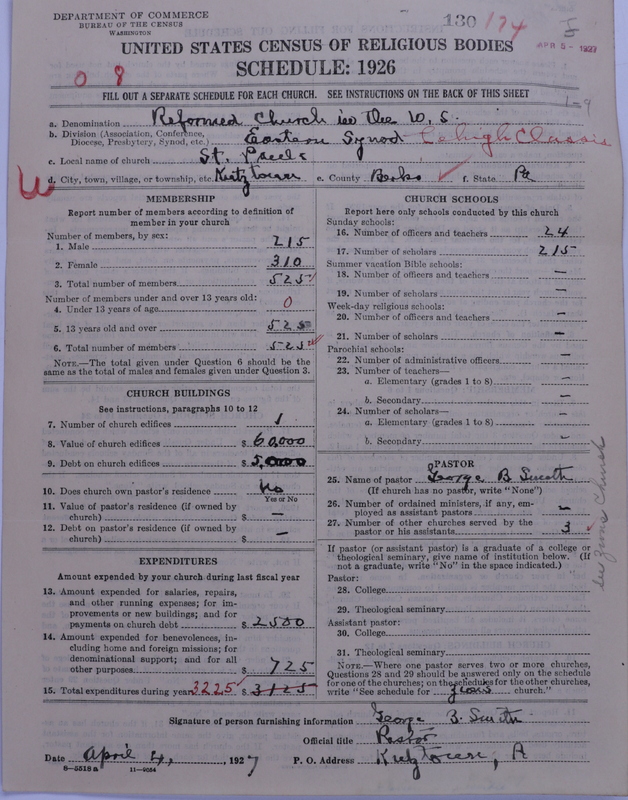 DEPARTMENT OF COMMERCE
BUREAU OF THE CENSUS
WASHINGTON
130 174
APR 5 - 1927
UNITED STATES CENSUS OF RELIGIOUS BODIES
SCHEDULE: 1926
0 8
FILL OUT A SEPARATE SCHEDULE FOR EACH CHURCH. SEE INSTRUCTIONS ON THE BACK OF THIS SHEET
1-9
a. Denomination Reformed Church in the U. S.
b. Division (Association, Conference, Diocese, Presbytery, Synod, etc.) Eastern Synod Lehigh Classis
c. Local name of church St. Pauls
d. City, town, village, or township, etc. Kutztown e. County Berks f. State Pa
MEMBERSHIP
Report number of members according to definition of
member in your church
Number of members, by sex:
1. Male 215
2. Female 310
3. Total number of members 525
Number of members under and over 13 years old:
4. Under 13 years of age 0
5. 13 years old and over 525
6. Total number of members 525
NOTE.—The total given under Question 6 should be the
same as the total of males and females given under Question 3.
CHURCH BUILDINGS
See instructions, paragraphs 10 to 12
7. Number of church edifices 1
8. Value of church edifices $ 60,000
9. Debt on church edifices $ 5,000
10. Does church own pastor's residence No
Yes or No
11. Value of pastor's residence (if owned by
church) $ —
12. Debt on pastor's residence (if owned by
church) $ —
EXPENDITURES
Amount expended by your church during last fiscal year
13. Amount expended for salaries, repairs,
and other running expenses; for im-
provements or new buildings; and for
payments on church debt $ 2500
14. Amount expended for benevolences, in-
cluding home and foreign missions; for
denominational support; and for all
other purposes $ 725
15. Total expenditures during year 3225 $ 3125
CHURCH SCHOOLS
Report here only schools conducted by this church
Sunday schools:
16. Number of officers and teachers 24
17. Number of scholars 215
Summer vacation Bible schools:
18. Number of officers and teachers —
19. Number of scholars —
Week-day religious schools:
20. Number of officers and teachers —
21. Number of scholars —
Parochial schools:
22. Number of administrative officers —
23. Number of teachers—
a. Elementary (grades 1 to 8) —
b. Secondary —
24. Number of scholars—
a. Elementary (grades 1 to 8) —
b. Secondary —
PASTOR
25. Name of pastor George B Smith
(If church has no pastor, write "None")
26. Number of ordained ministers, if any, em-
ployed as assistant pastors —
27. Number of other churches served by the
pastor or his assistants 3
If pastor (or assistant pastor) is a graduate of a college or
theological seminary, give name of institution below. (If
not a graduate, write "No" in the space indicated.)
Pastor:
28. College
29. Theological seminary
Assistant pastor:
30. College
31. Theological seminary
NOTE.—Where one pastor serves two or more churches,
Questions 28 and 29 should be answered only on the schedule
for one of the churches; on the schedules for the other churches,
write "See schedule for Zions church."
see Zions Church
Signature of person furnishing information George B. Smith
Official title Pastor
Date April 4, 1927 P. O. Address Kutztown, Pa
8—5518a 11—9054